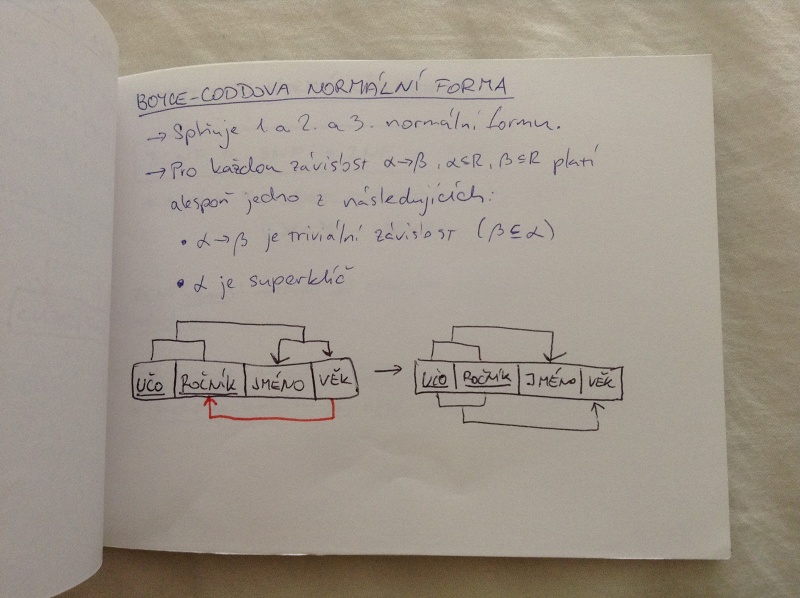 BOYCE-CODDOVA NORMÁLNÍ FORMA
→ Splňuje 1. a 2. a 3. normální formu.
→ Pro každou závislost α→β, α⊆R, β⊆R platí
alespoň jedno z následujících:
• α→β je triviální závislost (β⊆α)
• α je superklíč
UČO ROČNÍK JMÉNO VĚK → UČO ROČNÍK JMÉNO VĚK